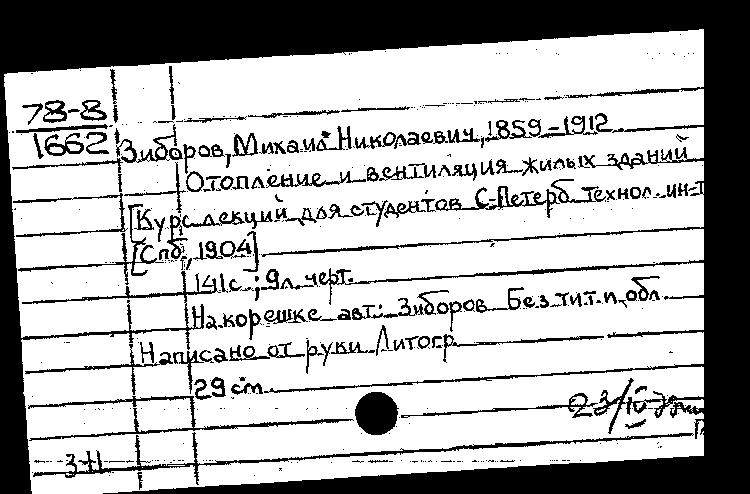 78-8
1662
Зиборов, Михаил Николаевич, 1859-1912.
Отопление и вентиляция жилых зданий
[Курс лекций для студентов С-Петерб. технол. ин-т
[Спб, 1904]
141с.; 9л. черт.
На корешке авт.: Зиборов Без тит. л. обл.
Написано от руки Литогр.
29 см.
23/IV